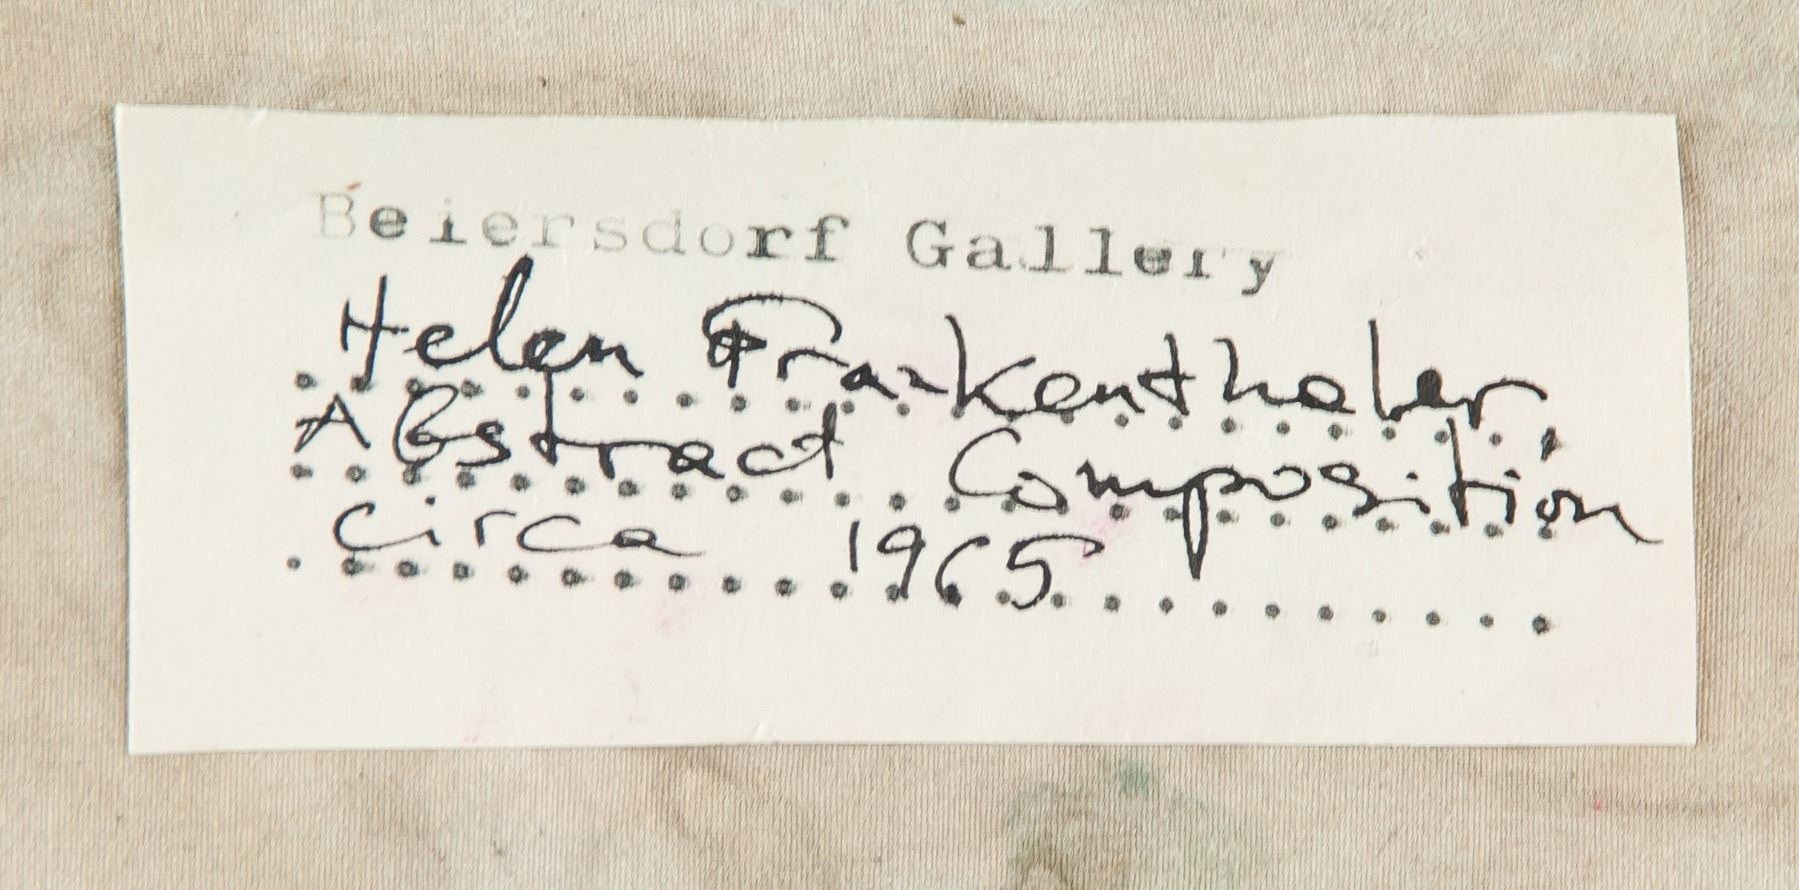 Beiersdorf Gallery
Helen Frankenthaler,
Abstract Composition
circa 1965